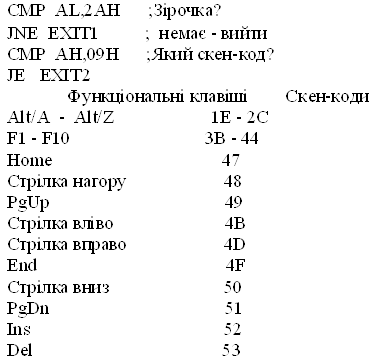 CMP AL,2AH ;Зірочка?
JNE EXIT1 ; немає - вийти
CMP AH,09H ;Який скен-код?
JE EXIT2
Функціональні клавіші Скен-коди
Alt/A - Alt/Z 1E - 2C
F1 - F10 3B - 44
Home 47
Стрілка нагору 48
PgUp 49
Стрілка вліво 4B
Стрілка вправо 4D
End 4F
Стрілка вниз 50
PgDn 51
Ins 52
Del 53